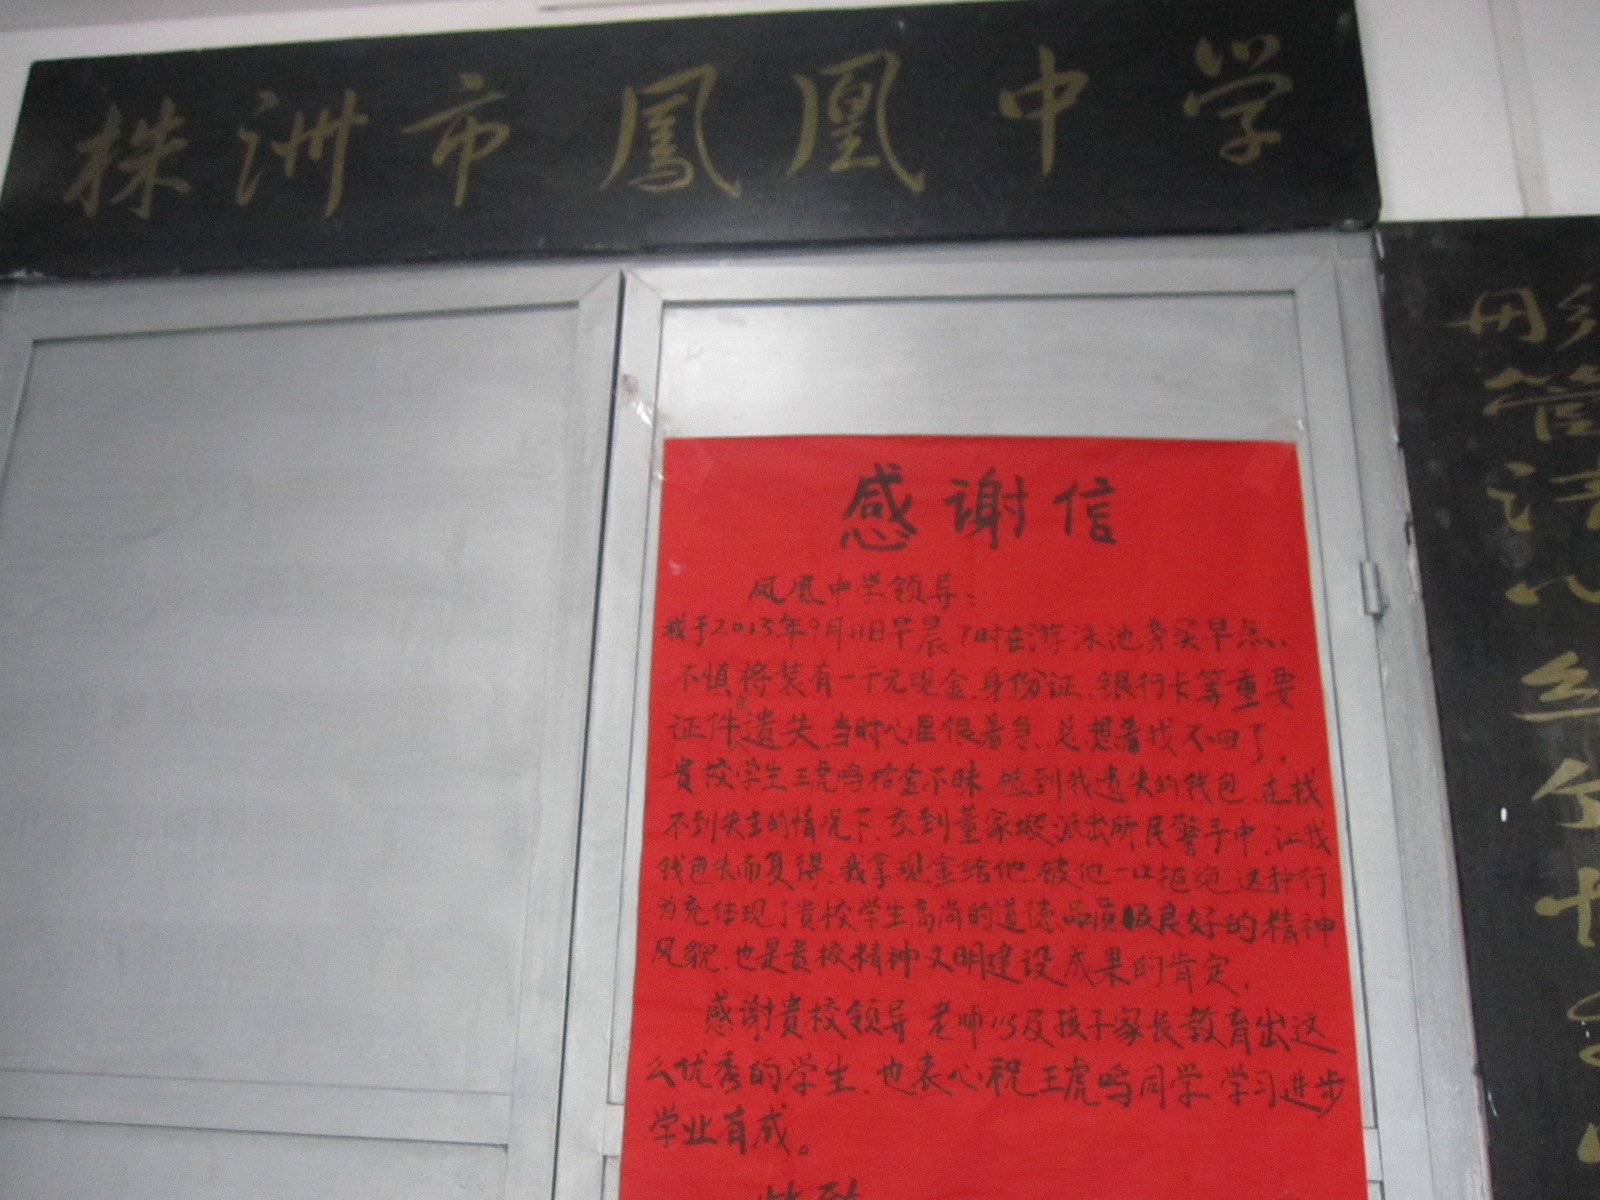 株洲市鳳凰中学
彤管清心
感谢信
凤凰中学领导：
我于2013年9月11日早晨7时在游泳池旁买早点.
不慎将装有一千元现金、身份证、银行卡等重要
证件包遗失、当时心里很着急、总想着找不回了.
贵校学生王虎鸣拾金不昧、捡到我遗失的钱包、在找
不到失主的情况下、交到董家塅派出所民警手中、让我
钱包失而复得、我拿现金给他、被他一口拒绝、这种行
为充体现了贵校学生高尚的道德品质及良好的精神
风貌、也是贵校精神文明建设成果的肯定.
感谢贵校领导、老师以及孩子家长教育出这
么优秀的学生、也衷心祝王虎鸣同学、学习进步
学业有成。
此致